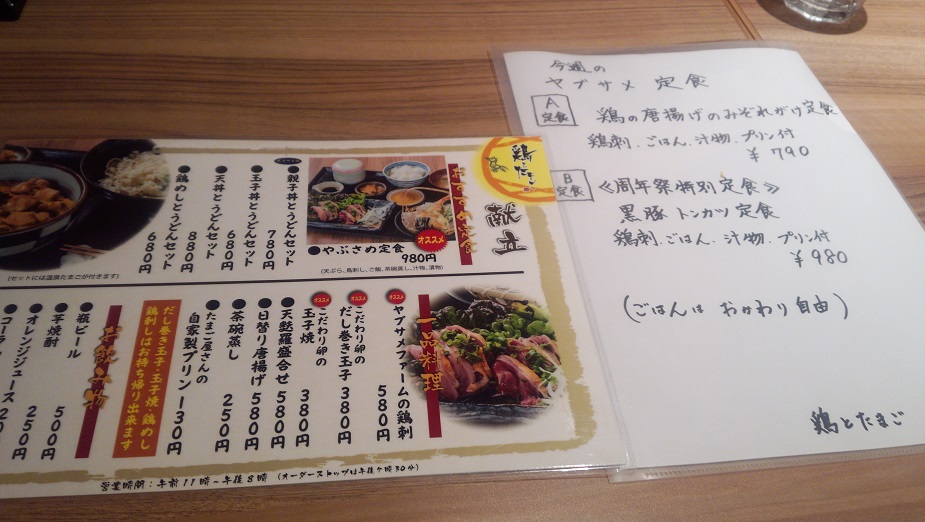 鶏とたまご
献立
おすすめ定食
オススメ
●やぶさめ定食
980円
(天ぷら、鳥刺し、ご飯、茶碗蒸し、汁物、漬物)
●親子丼とうどんセット
780円
●玉子丼とうどんセット
680円
●天丼とうどんセット
880円
●鶏めしとうどんセット
680円
(セットには温泉たまごが付きます)
一品料理
オススメ
ヤブサメファームの鶏刺
580円
オススメ
こだわり卵の
だし巻き玉子
380円
オススメ
こだわり卵の
玉子焼
380円
●天麩羅盛合せ
580円
●日替り唐揚げ
580円
●茶碗蒸し
250円
●たまご屋さんの
自家製プリン
130円
だし巻き玉子・玉子焼・鶏めし
鶏刺しはお持ち帰り出来ます
お飲み物
●瓶ビール
●芋焼酎
500円
●オレンジジュース
250円
●コーラ
営業時間：午前11時～午後8時 (オーダーストップは午後7時30分)
今週の
ヤブサメ 定食
A
定食
鶏の唐揚げのみぞれがけ定食
鶏刺．ごはん．汁物．プリン付
￥790
B
定食
≪周年祭特別定食≫
黒豚トンカツ定食
鶏刺．ごはん．汁物．プリン付
￥980
(ごはんは おかわり自由)
鶏とたまご